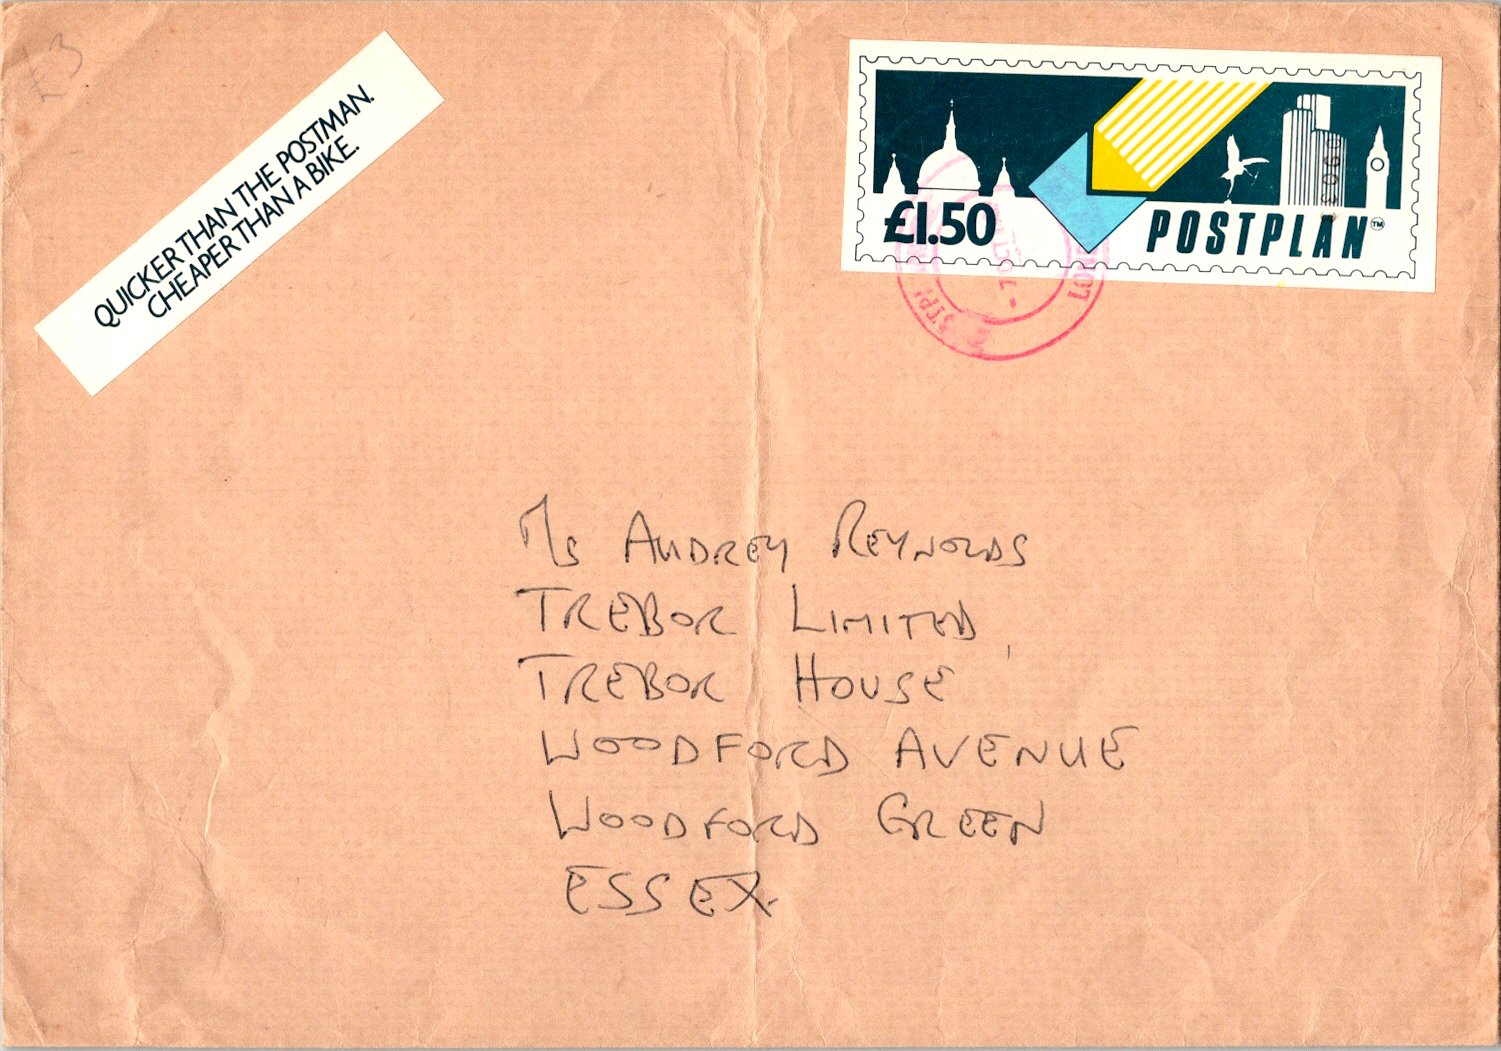 £3
QUICKER THAN THE POSTMAN.
CHEAPER THAN A BIKE.
£1.50
POSTPLAN™
Ms AUDREY REYNOLDS
TREBOR LIMITED
TREBOR HOUSE
WOODFORD AVENUE
WOODFORD GREEN
ESSEX